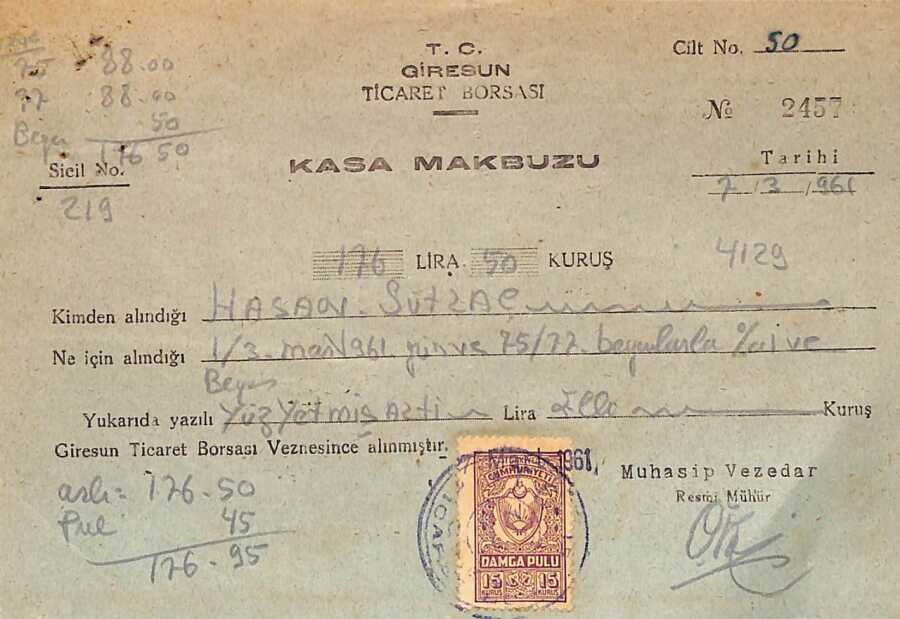 75 88.00
77 88.00
Beyan 50
176 50
T. C.
GİRESUN
TİCARET BORSASI
Cilt No. 50
№ 2457
KASA MAKBUZU
Sicil No.
219
Tarihi
7 / 3 / 961
176 LİRA. 50 KURUŞ
4129
Kimden alındığı HASAN. SÜTLAÇ
Ne için alındığı 1/3. mart 961. gün ve 75/77. beyanlarla ve
Beyan
Yukarıda yazılı Yüz Yetmiş Altı Lira Elli Kuruş
Giresun Ticaret Borsası Veznesince alınmıştır.
1961
Muhasip Vezedar
Resmi Mühür
aslı = 176.50
Pul 45
176.95
CUMHURİYETİ
DAMGA PULU
15 15
KURUŞ KURUŞ